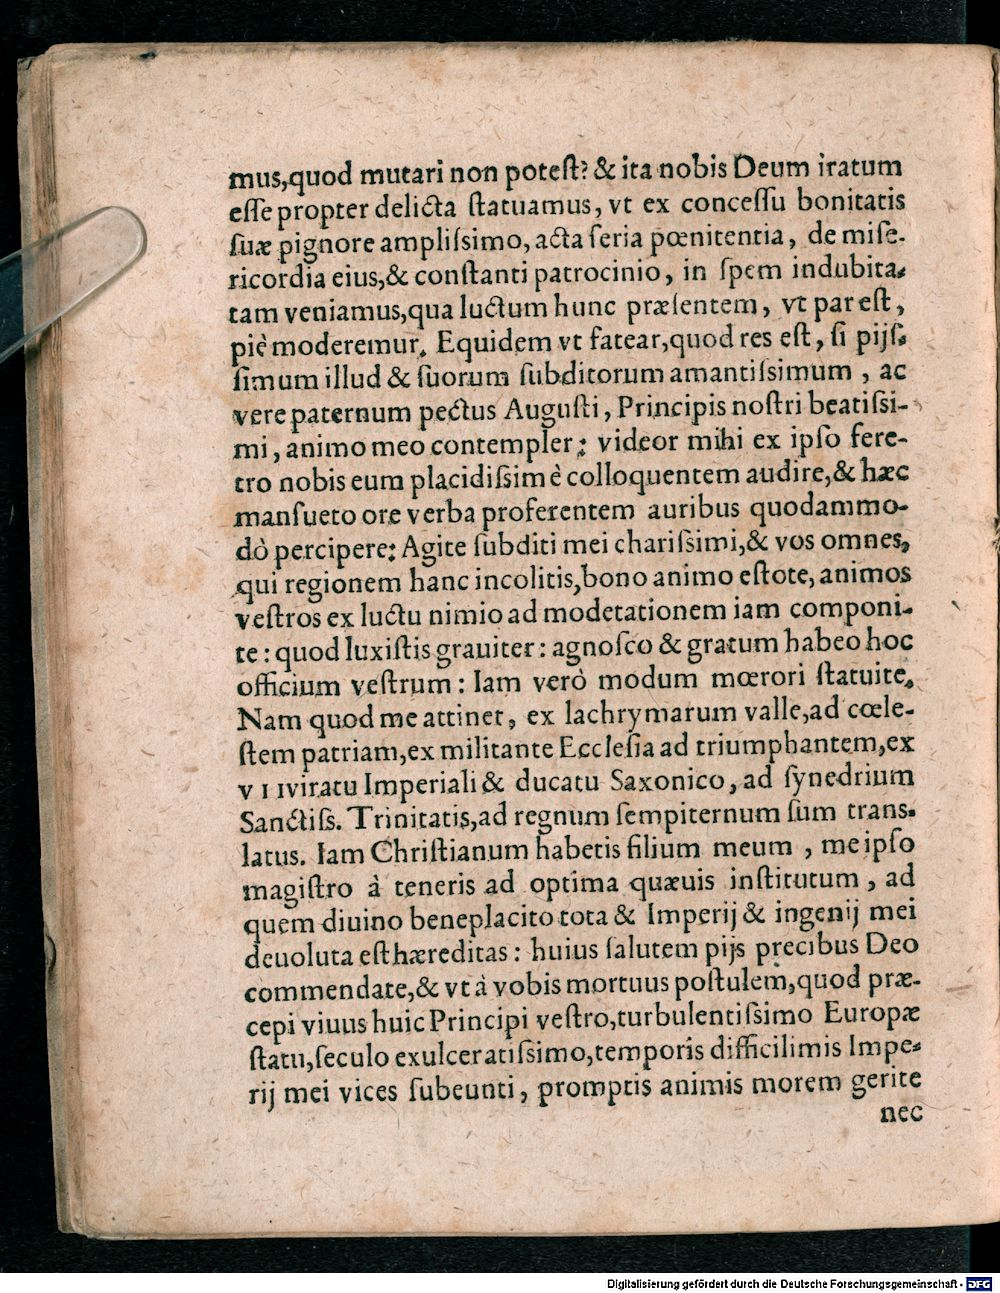 mus,quod mutari non potest? & ita nobis Deum iratum
esse propter delicta statuamus, vt ex concessu bonitatis
suæ pignore amplissimo, acta seria pœnitentia, de mise-
ricordia eius,& constanti patrocinio, in spem indubita-
tam veniamus,qua luctum hunc præsentem, vt par est,
piè moderemur. Equidem vt fatear,quod res est, si pijs-
simum illud & suorum subditorum amantissimum, ac
vere paternum pectus Augusti, Principis nostri beatissi-
mi, animo meo contempler: videor mihi ex ipso fere-
tro nobis eum placidissimè colloquentem audire,& hæc
mansueto ore verba proferentem auribus quodammo-
dò percipere: Agite subditi mei charissimi,& vos omnes,
qui regionem hanc incolitis,bono animo estote, animos
vestros ex luctu nimio ad modetationem iam componi-
te: quod luxistis grauiter: agnosco & gratum habeo hoc
officium vestrum: Iam verò modum mœrori statuite.
Nam quod me attinet, ex lachrymarum valle,ad cœle-
stem patriam,ex militante Ecclesia ad triumphantem,ex
VIIviratu Imperiali & ducatu Saxonico, ad synedrium
Sanctiss. Trinitatis,ad regnum sempiternum sum trans-
latus. Iam Christianum habetis filium meum, me ipso
magistro à teneris ad optima quæuis institutum, ad
quem diuino beneplacito tota & Imperij & ingenij mei
deuoluta est hæreditas: huius salutem pijs precibus Deo
commendate,& vt à vobis mortuus postulem,quod præ-
cepi viuus huic Principi vestro,turbulentissimo Europæ
statu,seculo exulceratissimo,temporis difficilimis Impe-
rij mei vices subeunti, promptis animis morem gerite
nec
Digitalisierung gefördert durch die Deutsche Forschungsgemeinschaft - DFG